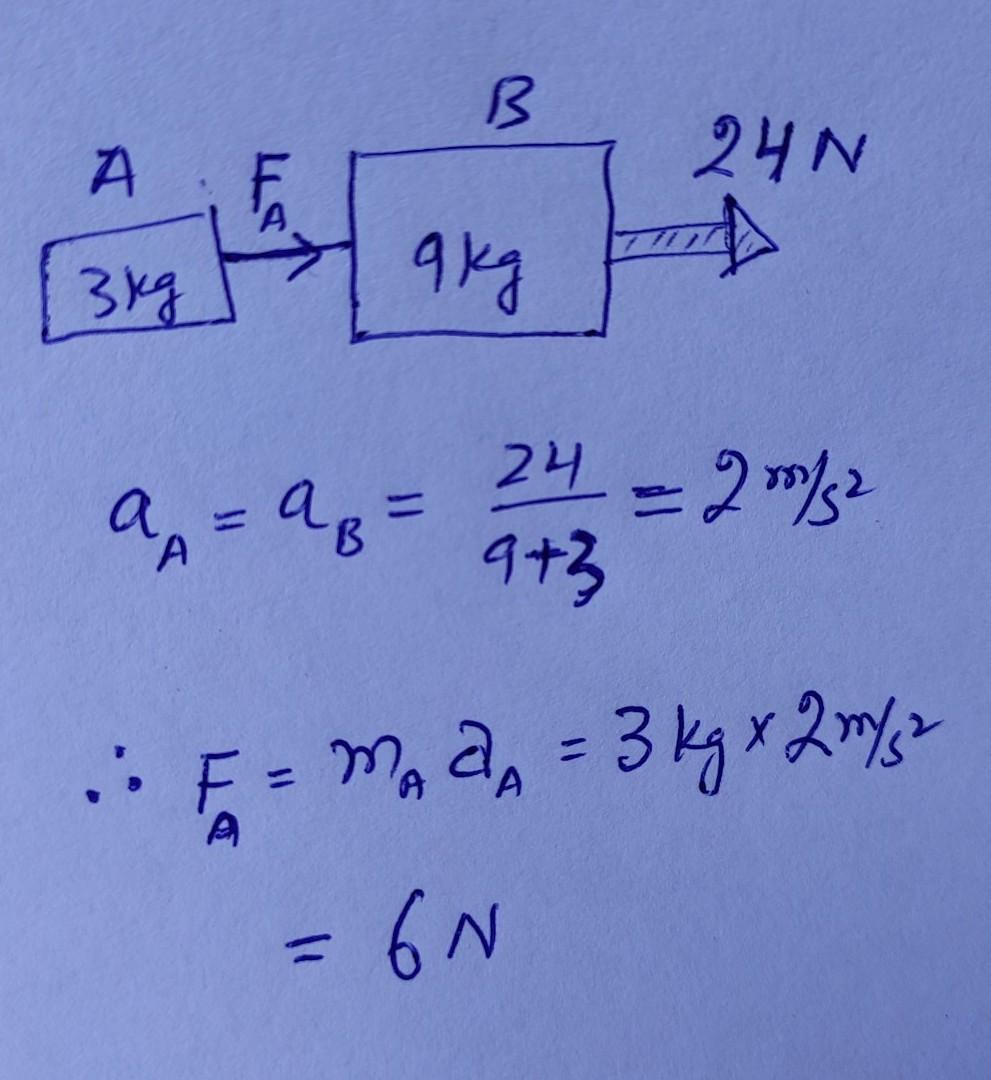 B
24 N
A
F_A
3 kg
9 kg
a_A = a_B = 24/(9+3) = 2 m/s²
∴ F_A = m_A a_A = 3 kg × 2 m/s²
= 6 N